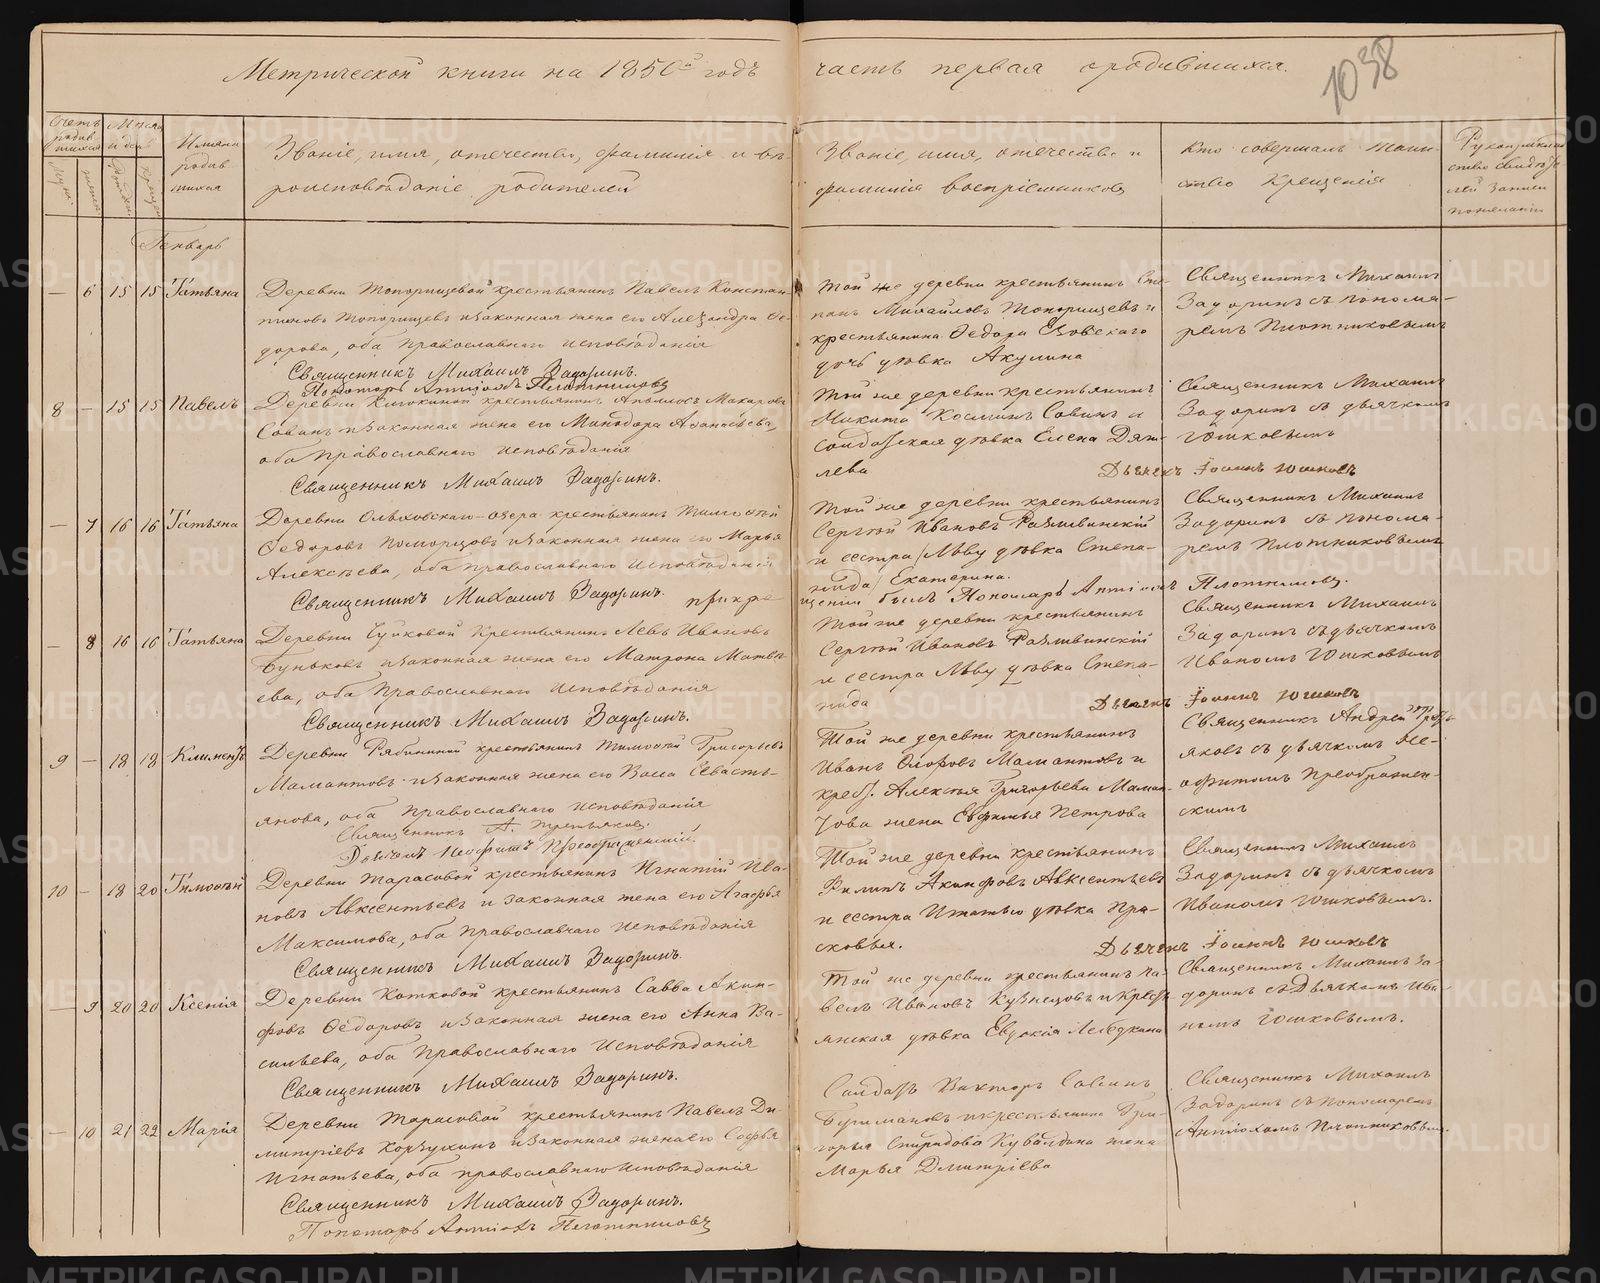 Метрической книги на 1850й годъ часть первая о родившихся.
1038
Счетъ родив шихся
Мѣсяц и день
Имяна родив шихся
Званіе, имя, отечество, фамилія и вѣ-
роисповѣданіе родителей
Званіе, имя, отечество и
фамилія воспріемниковъ
Кто совершалъ таин-
ство Крещенія
Рукоприклад
ство свидѣте
лей записи
по желанію
Генварь
— 6 15 15 Татьяна
Деревни Топорищевой крестьянинъ Павелъ Констан-
тиновъ Топорищевъ и законная жена его Александра Ѳе-
дорова, оба православнаго исповѣданія
Священникъ Михаилъ Задоринъ.
Пономарь Антіохъ Плотниковъ
Той же деревни крестьянинъ Сте-
панъ Михайловъ Топорищевъ и
крестьянина Ѳедора
дочь дѣвка Акулина
Священникъ Михаилъ
Задоринъ съ понома-
ремъ Плотниковымъ
8 — 15 15 Павелъ
Деревни крестьянинъ Макаровъ
Савинъ и законная жена его Минодора Аѳанасьева,
оба православнаго исповѣданія
Священникъ Михаилъ Задоринъ.
Той же деревни крестьянинъ
Никита Косминъ Савинъ и
солдатская дѣвка Елена Дят-
лева
Священникъ Михаилъ
Задоринъ съ дьячкомъ
Юшковымъ
Дьячекъ Іоаннъ Юшковъ
— 7 16 16 Татьяна
Деревни Ольховскаго-озера крестьянинъ Тимоѳей
Ѳедоровъ Поморцовъ и законная жена его Марья
Алексѣева, оба православнаго исповѣданія
Священникъ Михаилъ Задоринъ. при кре-
щеніи былъ Пономарь Антіохъ Плотниковъ.
Той же деревни крестьянинъ
Сергѣй Ивановъ
и сестра /Льву дѣвка Степа-
нида/ Екатерина.
Священникъ Михаилъ
Задоринъ съ понома-
ремъ Плотниковымъ
— 8 16 16 Татьяна
Деревни Чупковой Крестьянинъ Левъ Ивановъ
Буньковъ и законная жена его Матрона Матвѣ-
ева, оба православнаго исповѣданія
Священникъ Михаилъ Задоринъ.
Той же деревни крестьянинъ
Сергѣй Ивановъ
и сестра Льву дѣвка Степа-
нида
Священникъ Михаилъ
Задоринъ съ дьячкомъ
Иваномъ Юшковымъ
Дьячекъ Іоаннъ Юшковъ
9 — 18 18 Климентъ
Деревни Рябининой крестьянинъ Тимоѳей Григорьевъ
Мамантовъ и законная жена его Васса Севасть-
янова, оба православнаго исповѣданія
Священникъ А. Третьяковъ.
Дьячекъ Неофитъ Преображенскій.
Той же деревни крестьянинъ
Иванъ Мамантовъ и
крест. Алексѣя Григорьева Маман-
това жена Евфимья Петрова
Священникъ Андрей Треть-
яковъ съ дьячкомъ Не-
офитомъ Преображен-
скимъ
10 — 18 20 Тимоѳей
Деревни Тарасовой крестьянинъ Игнатій Ива-
новъ Авксентьевъ и законная жена его Агафья
Максимова, оба православнаго исповѣданія
Священникъ Михаилъ Задоринъ.
Той же деревни крестьянинъ
Филипъ Акинфовъ Авксентьевъ
и сестра Игнатью дѣвка Пра-
сковья.
Священникъ Михаилъ
Задоринъ съ дьячкомъ
Иваномъ Юшковымъ.
Дьячекъ Іоаннъ Юшковъ
— 9 20 20 Ксенія
Деревни Котковой крестьянинъ Савва Акин-
фовъ Ѳедоровъ и законная жена его Анна Ва-
сильева, оба православнаго исповѣданія
Священникъ Михаилъ Задоринъ.
Той же деревни крестьянинъ Па-
велъ Ивановъ Кузнецовъ и крест-
янская дѣвка Евдокія
Священникъ Михаилъ За-
доринъ съ Дьячкомъ Ива-
номъ Юшковымъ.
— 10 21 22 Марія
Деревни Тарасовой крестьянинъ Павелъ Ди-
митріевъ Корзухинъ и законная жена его Софья
Игнатьева, оба православнаго исповѣданія
Священникъ Михаилъ Задоринъ.
Пономарь Антіохъ Плотниковъ
Солдатъ Викторъ
и крестьянина Гри-
горья Спиридова Кувалдина жена
Марья Дмитріева
Священникъ Михаилъ
Задоринъ съ пономаремъ
Антіохомъ Плотниковымъ.
METRIKI.GASO-URAL.RU